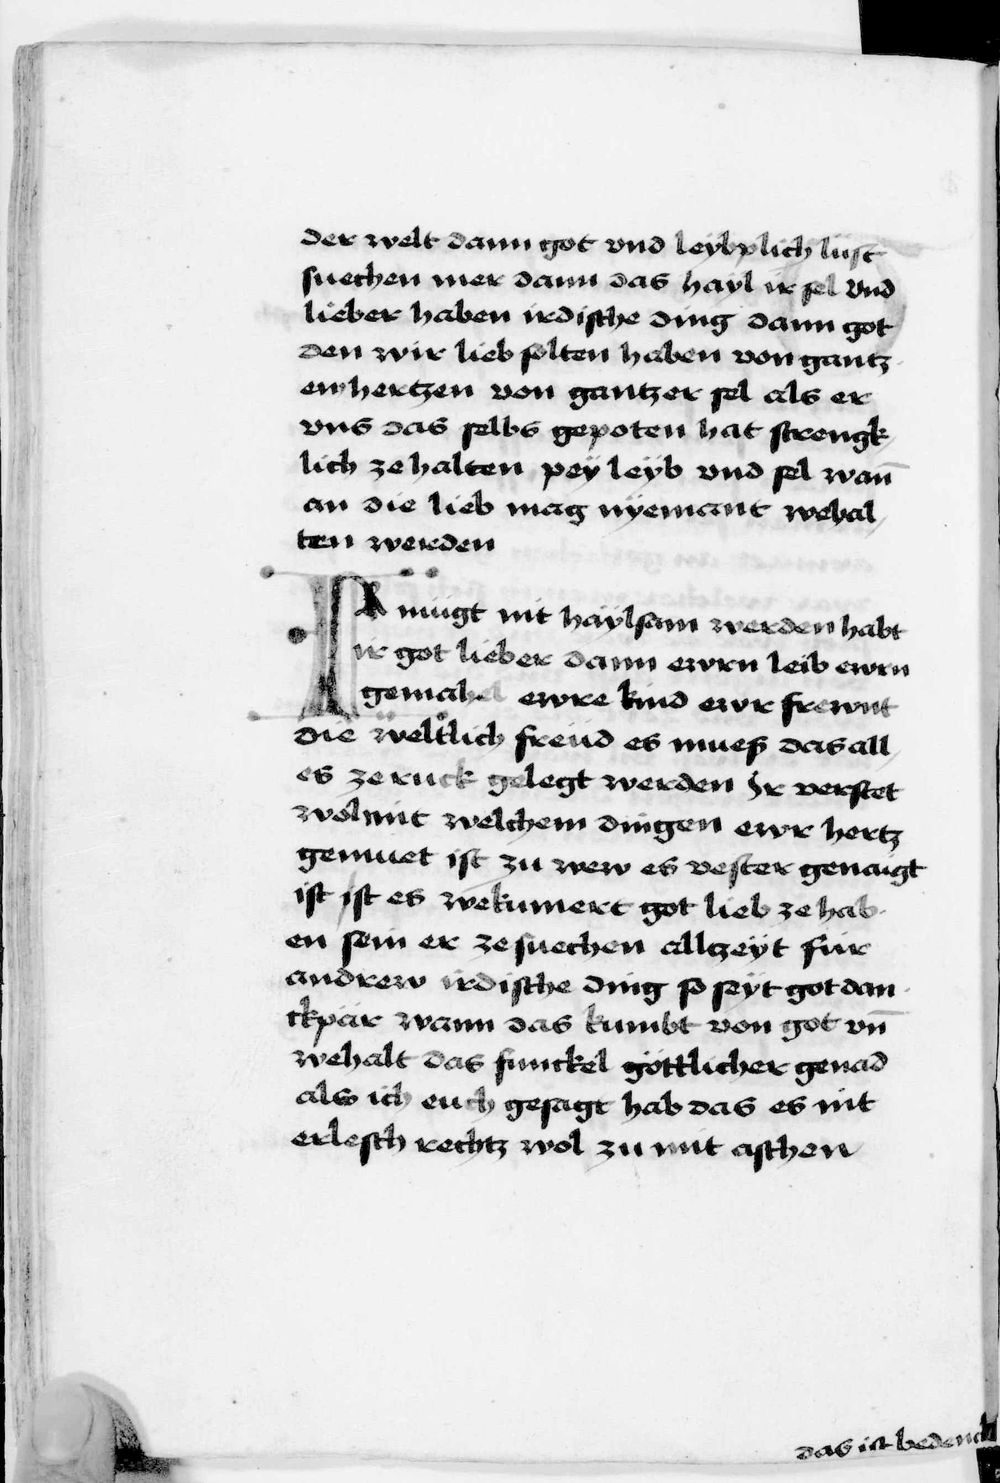 der welt dann got vnd leyb plich lüst
suechen mer dann das hayl ir sel vnd
lieber haben irdische ding dann got
den wir lieb solten haben von gantz
em hertzen von gantzer sel als er
vns das selbs gepoten hat strengk
lich ze halten pey leyb vnd sel wan̄
an die lieb mag nyemant wehal
ten werden
IR mügt nit haylsam werden habt
ir got lieber dann ewrn leib ewrn
gemahel ewre kind ewr frewnt
die weltlich freüd es mueß das all
es ze ruck gelegt werden Ir verstet
wol mit welchem dingen ewr hertz
gemuet ist zu wew es vester genaigt
ist ist es wekumert got lieb ze hab
en sein er ze suechen allczeyt für
andrew irdische ding so seyt got dan
ckpär wann das kumbt von got vn̄
wehalt das funckel göttlicher genad
als ich euch gesagt hab das es nit
erlesch rechtz wol zu mit aschen
das ist bedenck